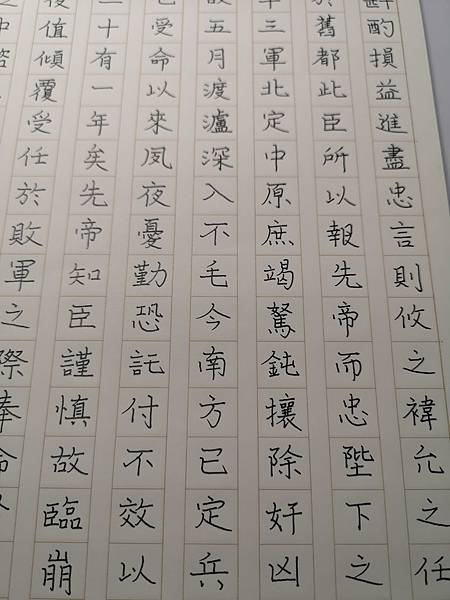 酌損益進盡忠言則攸之褘允之任
於舊都此臣所以報先帝而忠陛下之
率三軍北定中原庶竭駑鈍攘除奸凶
故五月渡瀘深入不毛今南方已定兵
也受命以來夙夜憂勤恐託付不效以
二十有一年矣先帝知臣謹慎故臨崩
後值傾覆受任於敗軍之際奉命
中諮